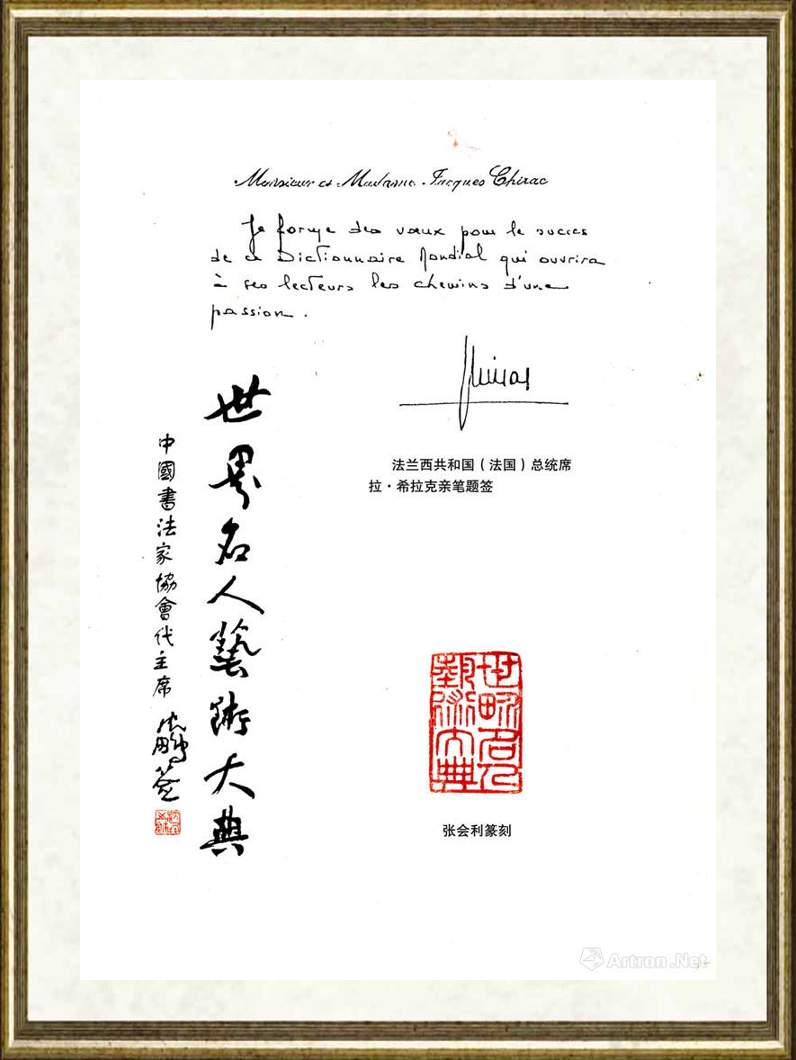 Monsieur et Madame Jacques Chirac
Je forme des vœux pour le succès
de ce Dictionnaire Mondial qui ouvrira
à ses lecteurs les chemins d'une
passion.
法兰西共和国（法国）总统席
拉·希拉克亲笔题签
世界名人藝術大典
中國書法家協會代主席 沈鹏签
世界名人
藝術大典
张会利篆刻
Artron.Net